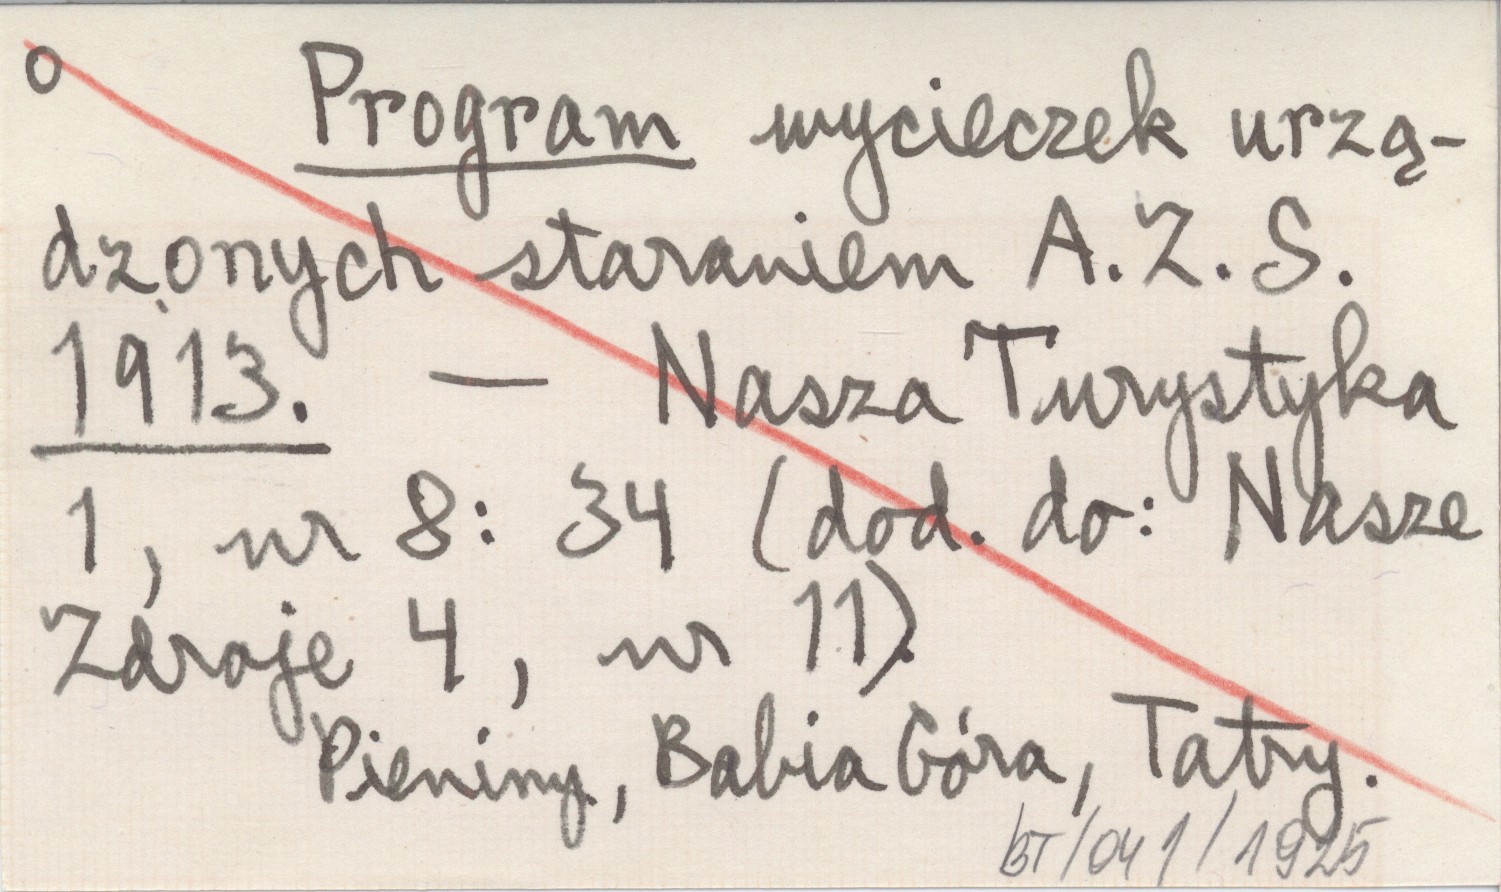 o Program wycieczek urzą-
dzonych staraniem A.Z.S.
1913. — Nasza Turystyka
1, nr 8: 34 (dod. do: Nasze
Zdroje 4, nr 11).
Pieniny, Babia Góra, Tatry.
BT/041/1925